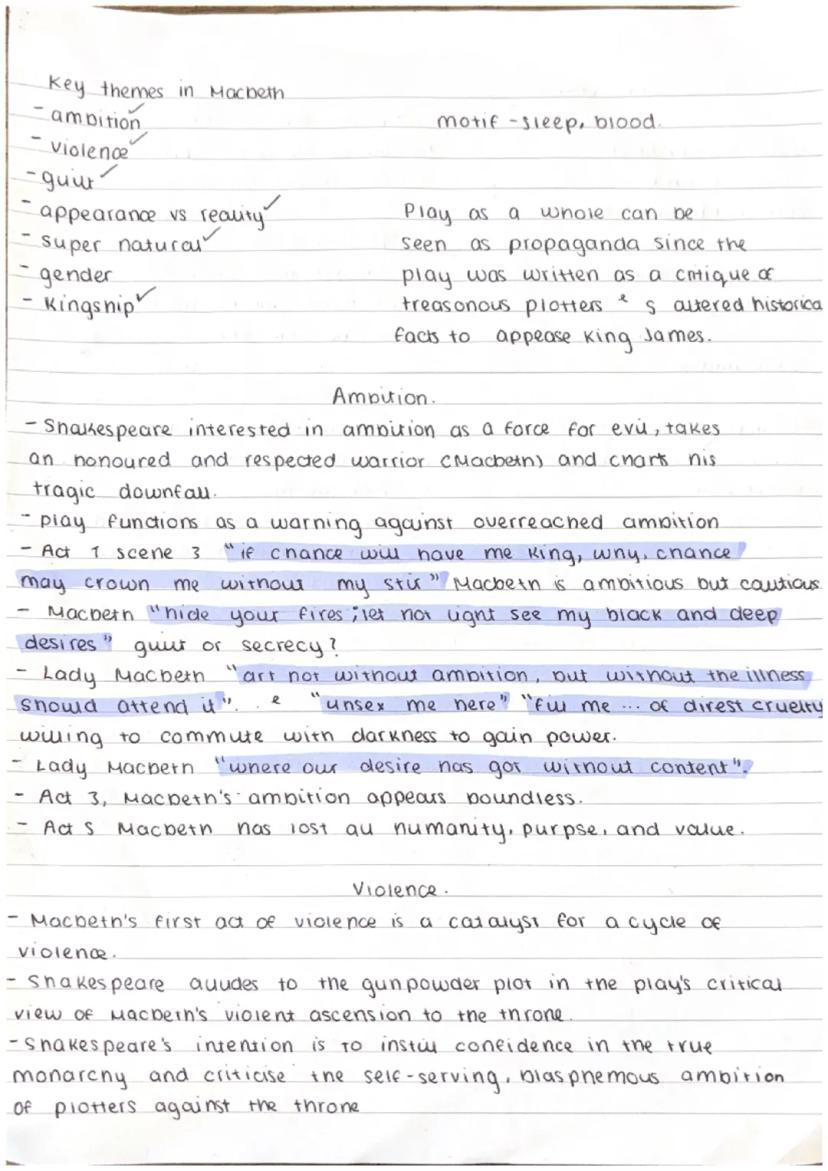 Key themes in Macbeth
- ambition ✓
motif - sleep, blood.
- violence ✓
- guilt ✓
- appearance vs reality ✓
- super natural ✓
- gender
- Kingship ✓
Play as a whole can be
seen as propaganda since the
play was written as a critique of
treasonous plotters & s altered historica
facts to appease King James.
Ambition.
- Shakespeare interested in ambition as a force for evil, takes
an honoured and respected warrior (Macbeth) and charts his
tragic downfall.
- play functions as a warning against overreached ambition
- Act 1 scene 3 "if chance will have me King, why, chance
may crown me without my stir" Macbeth is ambitious but cautious.
- Macbeth "hide your fires ; let not light see my black and deep
desires" guilt or secrecy?
- Lady Macbeth "art not without ambition, but without the illness
should attend it". . & "unsex me here" "fill me ... of direst cruelty
willing to commute with darkness to gain power.
- Lady Macbeth "where our desire has got without content".
- Act 3, Macbeth's ambition appears boundless.
- Act 5 Macbeth has lost all humanity, purpse, and value.
Violence.
- Macbeth's first act of violence is a catalyst for a cycle of
violence.
- Shakespeare alludes to the gunpowder plot in the play's critical
view of Macbeth's violent ascension to the throne.
- Shakespeare's intention is to instill confidence in the true
monarchy and criticise the self-serving, blasphemous ambition
of plotters against the throne